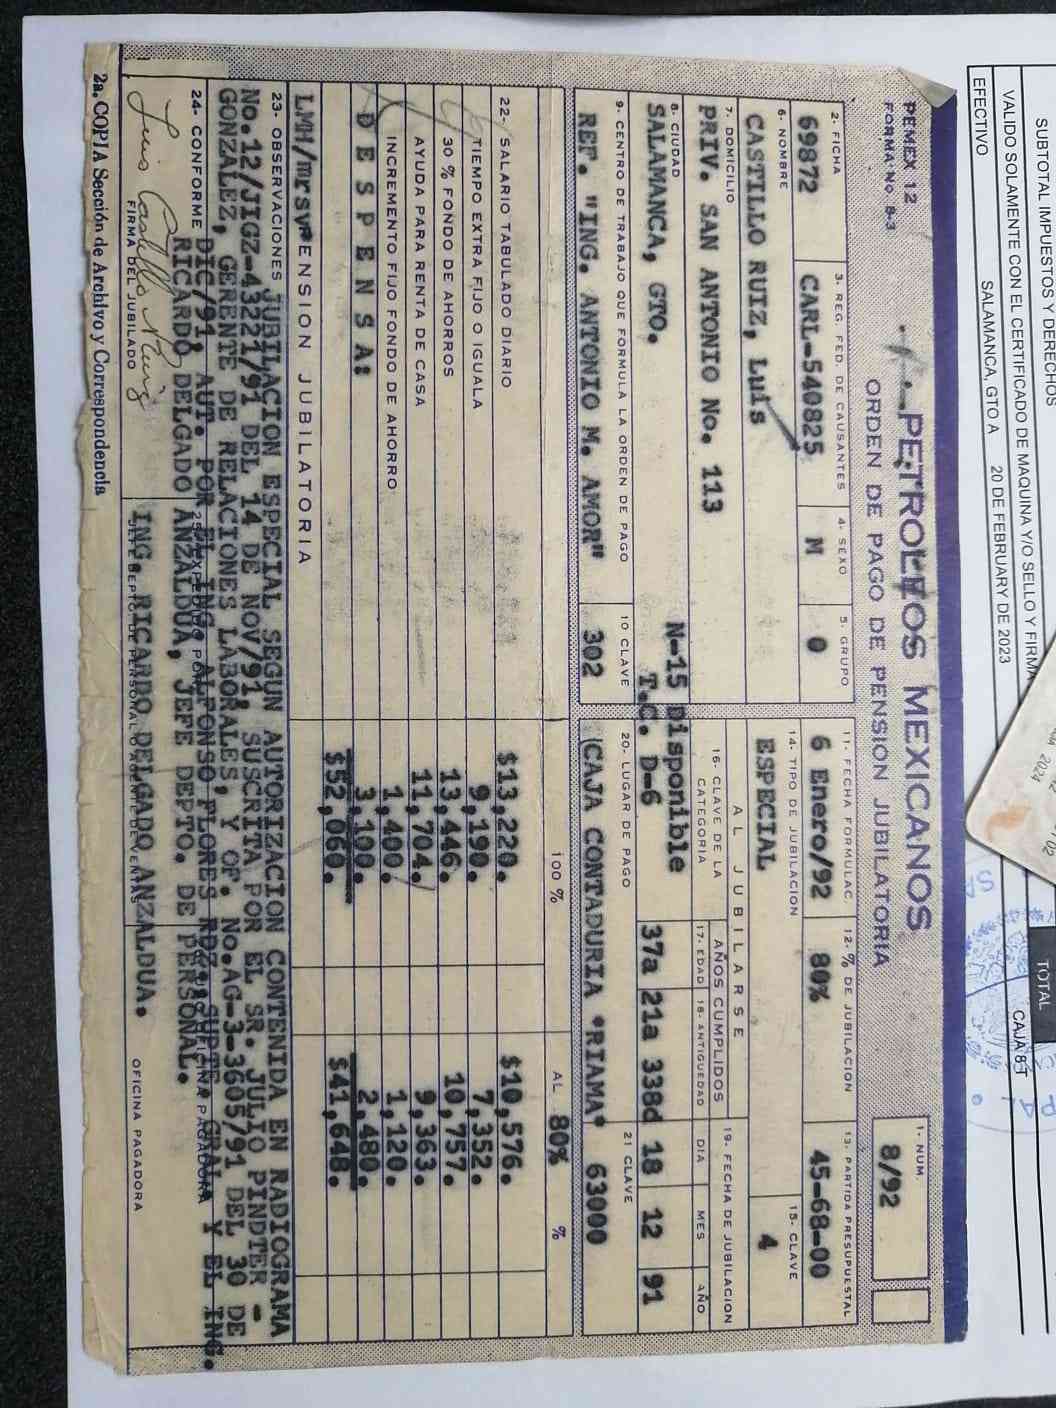 SUBTOTAL IMPUESTOS Y DERECHOS
VALIDO SOLAMENTE CON EL CERTIFICADO DE MAQUINA Y/O SELLO Y FIRMA
EFECTIVO
SALAMANCA, GTO A 20 DE FEBRUARY DE 2023
TOTAL
CAJA 8
PEMEX 12
FORMA No B-3
PETROLEOS MEXICANOS
ORDEN DE PAGO DE PENSIÓN JUBILATORIA
1- NUM.
8/92
2- FICHA
69872
3. REG. FED. DE CAUSANTES
CARL-540825
4- SEXO
M
5. GRUPO
0
11- FECHA FORMULAC.
6 Enero/92
12- % DE JUBILACION
80%
13. PARTIDA PRESUPUESTAL
45-68-00
6- NOMBRE
CASTILLO RUIZ, Luis
14- TIPO DE JUBILACION
ESPECIAL
15- CLAVE
4
7. DOMICILIO
PRIV. SAN ANTONIO No. 113
AL JUBILARSE
16- CLAVE DE LA CATEGORIA
N-15 Disponible
T.C. D-6
AÑOS CUMPLIDOS
17- EDAD
37a
18- ANTIGUEDAD
21a 338d
19- FECHA DE JUBILACION
DIA MES AÑO
18 12 91
8- CIUDAD
SALAMANCA, GTO.
9- CENTRO DE TRABAJO QUE FORMULA LA ORDEN DE PAGO
REF. "ING. ANTONIO M. AMOR"
10 CLAVE
302
20- LUGAR DE PAGO
(CAJA CONTADURIA "RIAMA"
21 CLAVE
63000
100 % AL 80% %
22- SALARIO TABULADO DIARIO $13,220. $10,576.
TIEMPO EXTRA FIJO O IGUALA 9,190. 7,352.
30 % FONDO DE AHORROS 13,446. 10,757.
AYUDA PARA RENTA DE CASA 11,704. 9,363.
INCREMENTO FIJO FONDO DE AHORRO 1,400. 1,120.
D E S P E N S A: 3,100. 2,480.
$52,060. $41,648.
LMH/mrsv PENSION JUBILATORIA
23- OBSERVACIONES JUBILACION ESPECIAL SEGUN AUTORIZACION CONTENIDA EN RADIOGRAMA
No.12/JIGZ-43221/91 DEL 14 DE NOV/91, SUSCRITA POR EL SR. JULIO PINDTER -
GONZALEZ, GERENTE DE RELACIONES LABORALES, Y OF. No.AG-3-3605/91 DEL 30 DE
DIC/91, AUT. POR EL ING. ALFONSO FLORES RDZ. SUPTE. GRAL Y EL ING.
RICARDO DELGADO ANZALDUA, JEFE DEPTO. DE PERSONAL.
24- CONFORME
Luis Castillo Ruiz
FIRMA DEL JUBILADO
ING. RICARDO DELGADO ANZALDUA.
OFICINA PAGADORA
2a. COPIA Sección de Archivo y Correspondencia